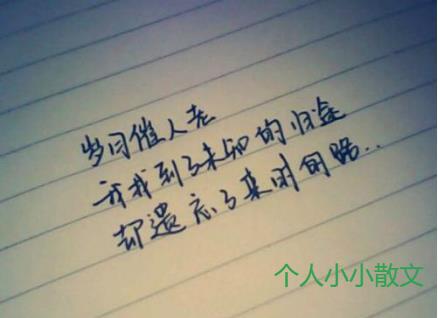 岁月催人老
我到了未知的归途
却遗忘了来时的路..
个人小小散文